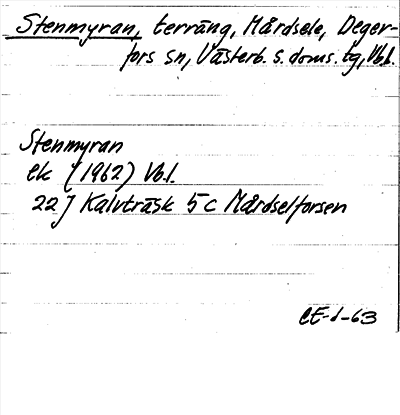 Stenmyran, terräng, Mårdsele, Deger-
fors sn, Västerb. s. doms. tg, Vb.l.
Stenmyran
ek (1962) Vb.l.
22J Kalvträsk 5c Mårdselforsen
CE-d-63